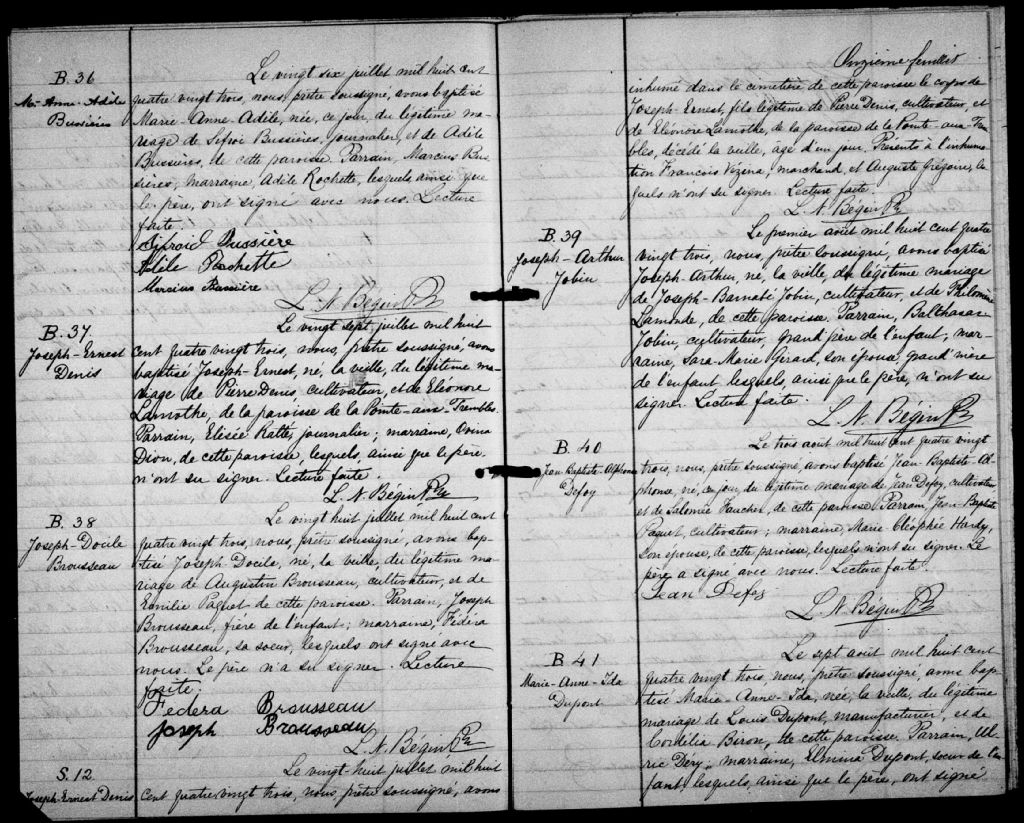 B. 36
Me-Anne-Adèle
Bussières
Le vingt six juillet mil huit cent
quatre vingt trois, nous, prêtre soussigné, avons baptisé
Marie-Anne-Adèle, née, ce jour, du légitime ma-
riage de Sifroi Bussières, journalier, et de Adèle
Bussières, de cette paroisse. Parrain, Marcius Bus-
sières; marraine, Adèle Rochette, lesquels ainsi que
le père, ont signé avec nous. Lecture
faite.
Sifroid Bussière
Adèle Rochette
Marcius Bussière
L. N. Bégin Ptre
B. 37
Joseph-Ernest
Denis
Le vingt sept juillet mil huit
cent quatre vingt trois, nous, prêtre soussigné, avons
baptisé Joseph-Ernest, né, la veille, du légitime ma-
riage de Pierre Denis, cultivateur, et de Eléonore
Lamothe, de la paroisse de la Pointe-aux-Trembles.
Parrain, Elisée Ratté, journalier; marraine, Ovina
Dion, de cette paroisse, lesquels, ainsi que le père,
n'ont su signer. Lecture faite.
L. N. Bégin Ptre
B. 38
Joseph-Docile
Brousseau
Le vingt huit juillet mil huit cent
quatre vingt trois, nous, prêtre soussigné, avons bap-
tisé Joseph Docile, né, la veille, du légitime ma-
riage de Augustin Brousseau, cultivateur, et de
Emilie Paquet de cette paroisse. Parrain, Joseph
Brousseau, frère de l'enfant; marraine, Fédéra
Brousseau, sa soeur, lesquels ont signé avec
nous. Le père n'a su signer. Lecture
faite.
Federa Brousseau
Joseph Brousseau
L. N. Bégin Ptre
S. 12
Joseph-Ernest Denis
Le vingt-huit juillet mil huit
cent quatre vingt trois, nous, prêtre soussigné, avons
Onzième feuillet
inhumé dans le cimetière de cette paroisse le corps de
Joseph-Ernest, fils légitime de Pierre Denis, cultivateur, et
de Eléonore Lamothe, de la paroisse de la Pointe-aux-Trem-
bles, décédé la veille, âgé d'un jour. Présents à l'inhuma-
tion François Vézina, marchand, et Auguste Grégoire, les-
quels n'ont su signer. Lecture faite.
L. N. Bégin Ptre
B. 39
Joseph-Arthur
Jobin
Le premier août mil huit cent quatre
vingt trois, nous, prêtre soussigné, avons baptisé
Joseph-Arthur, né, la veille du légitime mariage
de Joseph-Barnabé Jobin, cultivateur, et de Philomène
Lamonde, de cette paroisse. Parrain, Balthasar
Jobin, cultivateur, grand père de l'enfant; mar-
raine, Sara-Marie Girard, son épouse, grand'mère
de l'enfant lesquels, ainsi que le père, n'ont su
signer. Lecture faite.
L. N. Bégin Ptre
B. 40
Jean Baptiste-Alphonse
Defoy
Le trois août mil huit cent quatre vingt
trois, nous, prêtre soussigné, avons baptisé Jean-Baptiste-Al-
phonse, né, ce jour, du légitime mariage de Jean Defoy, cultivateur
et de Salomée Fauchon, de cette paroisse Parrain, Jean-Baptiste
Paquet, cultivateur; marraine, Marie Cléophée Hardy,
son épouse, de cette paroisse, lesquels n'ont su signer. Le
père a signé avec nous. Lecture faite.
Jean Defoy
L. N. Bégin Ptre
B 41
Marie-Anne-Ida
Dupont
Le sept août mil huit cent
quatre vingt trois, nous, prêtre soussigné, avons bap-
tisé Marie-Anne-Ida, née, la veille, du légitime
mariage de Louis Dupont, manufacturier, et de
Cordélia Biron, de cette paroisse. Parrain, Ul-
ric Déry, marraine, Elmina Dupont, soeur de l'en-
fant, lesquels, ainsi que le père, ont signé